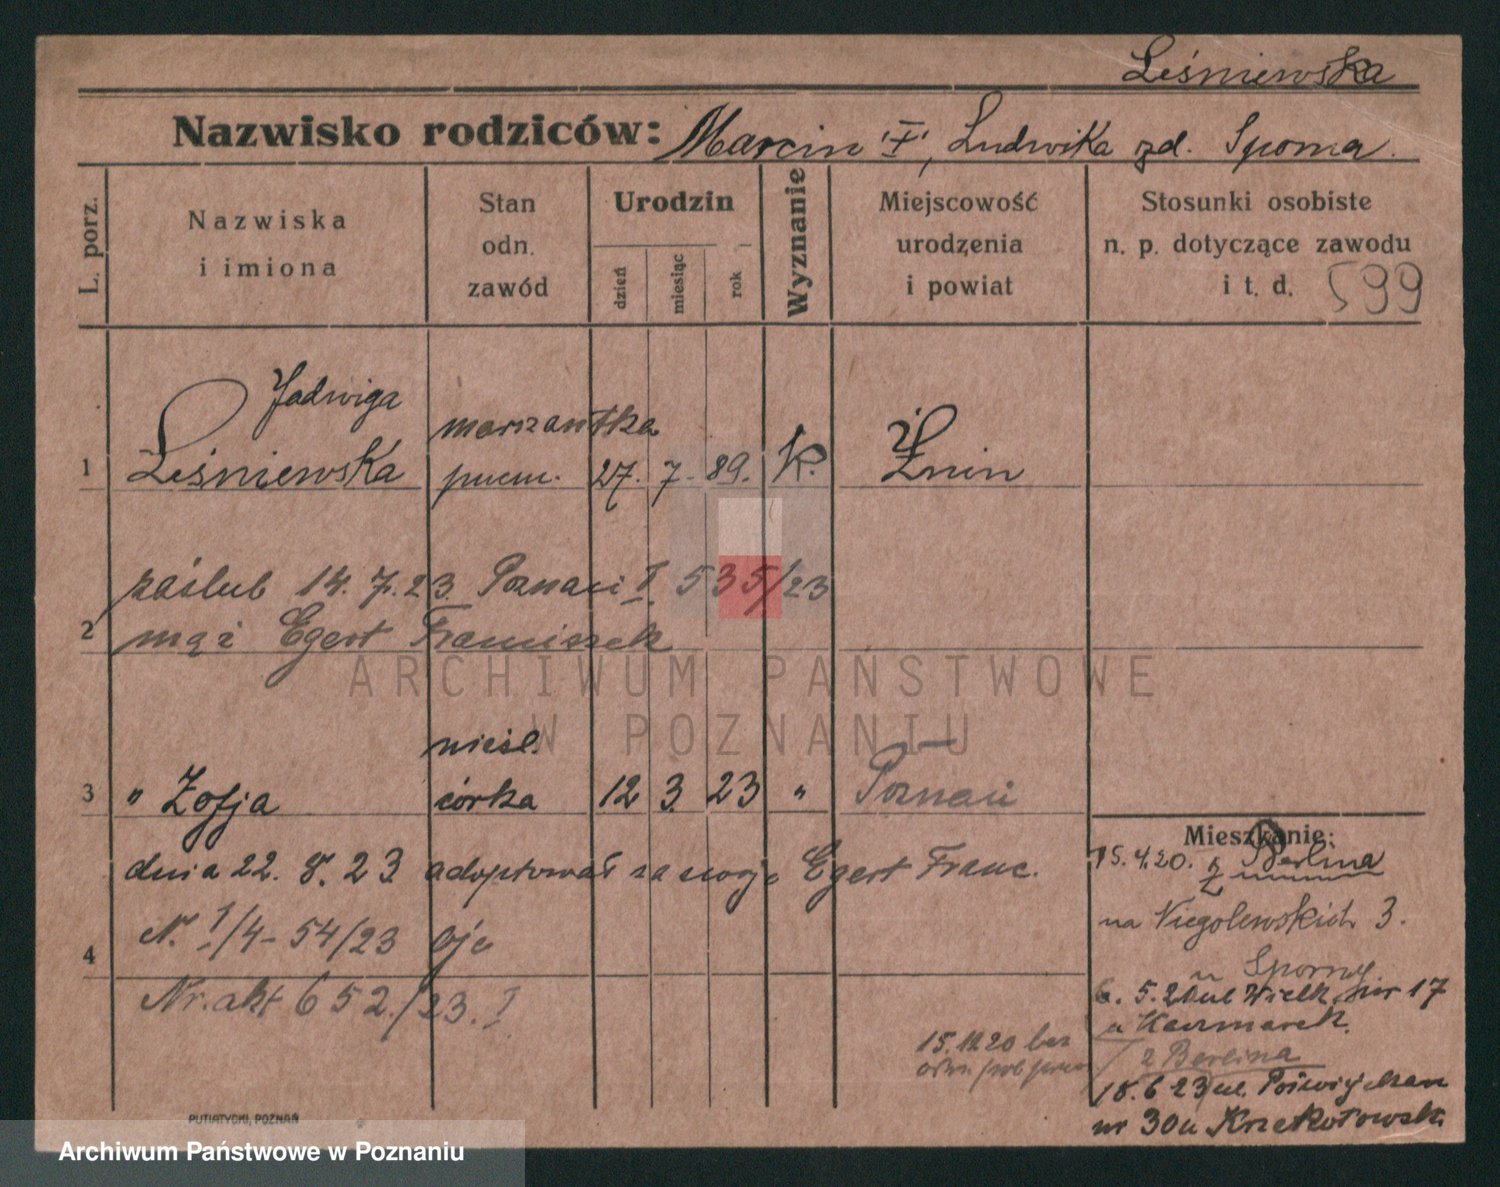 Leśniewska
Nazwisko rodziców: Marcin "†", Ludwika zd. Sporna.
L. porz.
Nazwiska
i imiona
Stan
odn.
zawód
Urodzin
dzień
miesiąc
rok
Wyznanie
Miejscowość
urodzenia
i powiat
Stosunki osobiste
n. p. dotyczące zawodu
i t. d. 599
Jadwiga
1 Leśniewska
27. 7. 89. K. Żnin
zaślub 14. 7. 23. Poznań I. 535/23
2 mąż Egert Franciszek
nieśl.
3 " Zofja córka 12 3. 23 " Poznań
dnia 22. 8. 23 adoptował za swoją Egert Franc.
N. 1/4-54/23
4
Nr. akt 652/23. I
Mieszkanie:
15.4.20. z Berlina
na Niegolewskich 3.
u Sporny
6. 5. 20 ul Wielk. 17
u Kaczmarek.
15.12.20 bez
z Berlina
18. 6 23 ul.
nr 30 u
PUTIATYCKI, POZNAŃ
ARCHIWUM PAŃSTWOWE
W POZNANIU
Archiwum Państwowe w Poznaniu